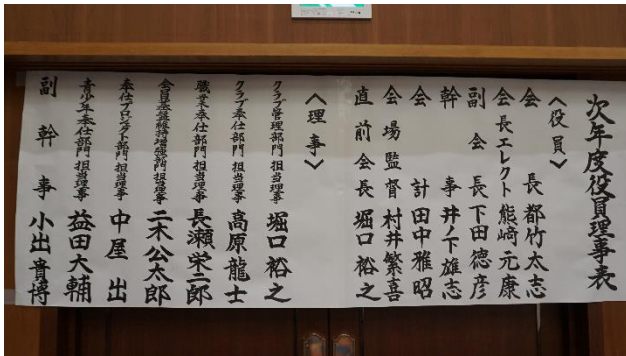 次年度役員理事表
〈役員〉
会長 都竹太志
会長エレクト 熊﨑元康
副会長 下田徳彦
幹事 井ノ下雄志
会計 田中雅昭
会場監督 村井繁喜
直前会長 堀口裕之
〈理事〉
クラブ管理部門 担当理事 堀口裕之
クラブ奉仕部門 担当理事 高原龍士
職業奉仕部門 担当理事 長瀬栄二郎
会員基盤維持増強部門 担当理事 二木公太郎
奉仕プロジェクト部門 担当理事 中屋出
青少年奉仕部門 担当理事 益田大輔
副幹事 小出貴博